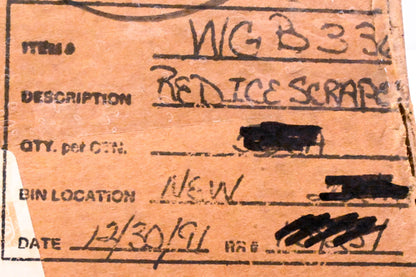 ITEM # WGB 33
DESCRIPTION RED ICE SCRAPE
QTY. per CTN.
BIN LOCATION NEW
DATE 12/30/91 RR #